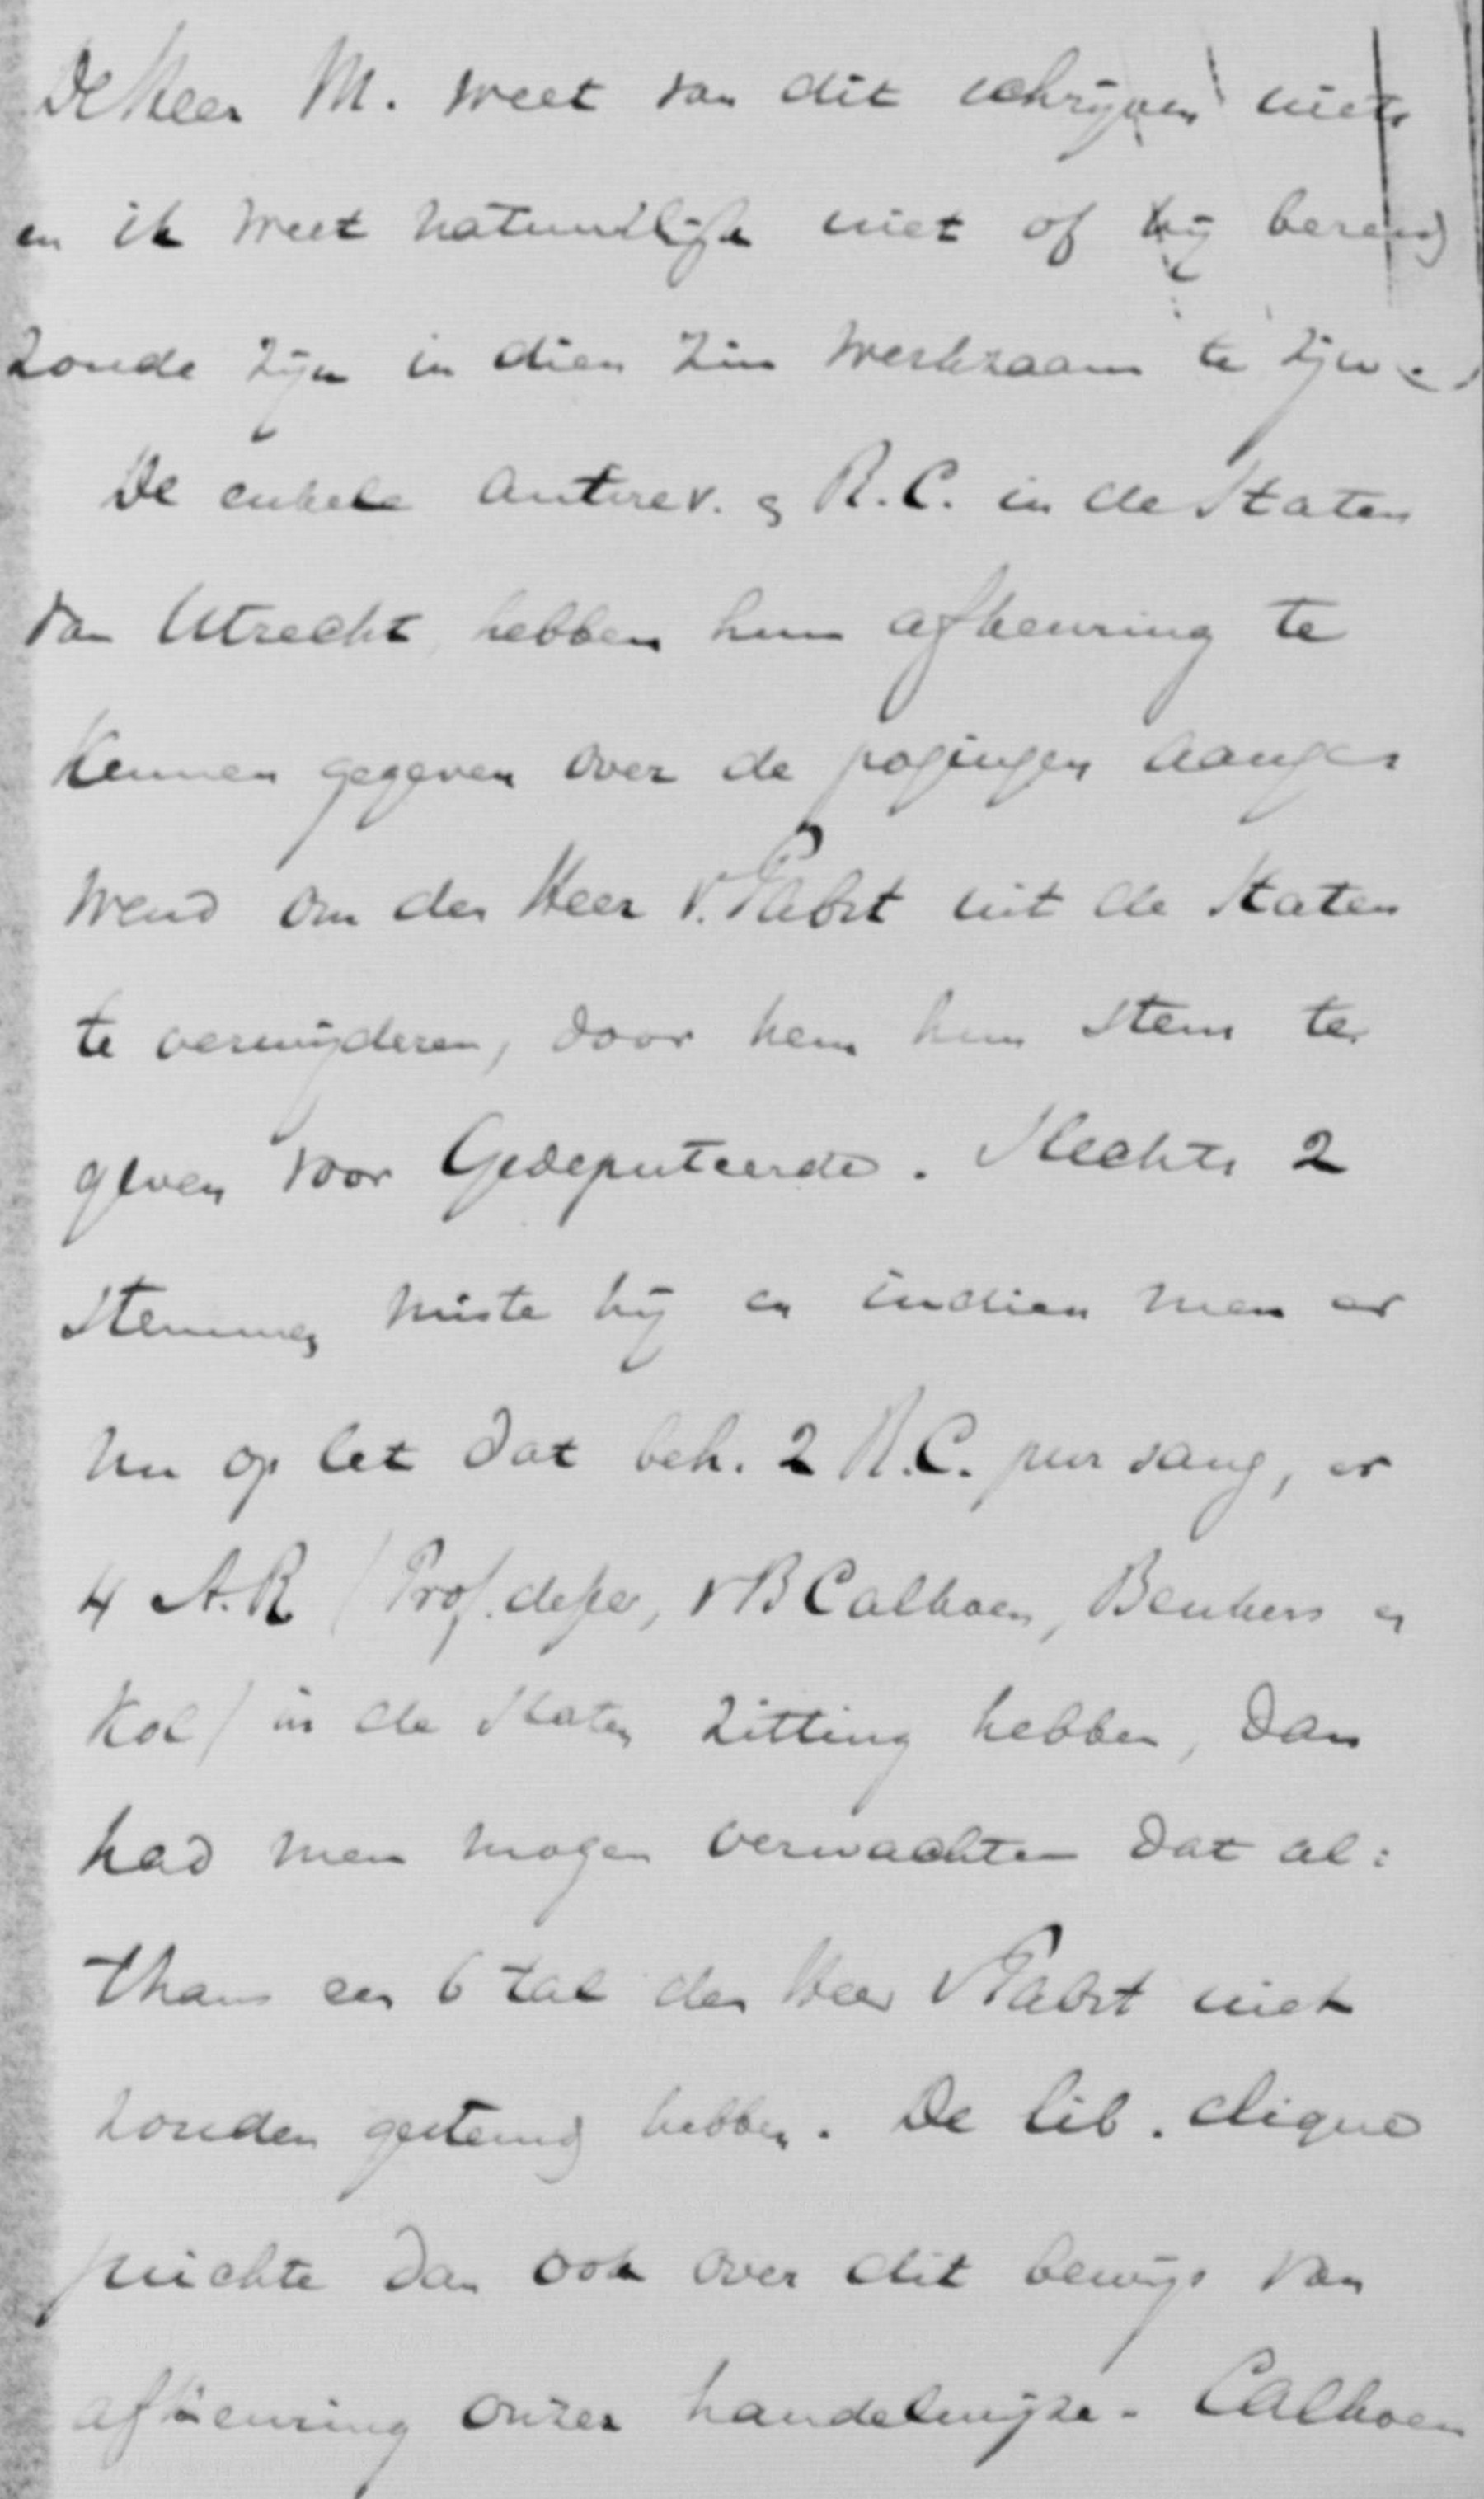 De Heer M. weet van dit schrijven niets
en ik weet natuurlijk niet of hij bereid
zoude zijn in dien zin werkzaam te zijn.
De enkele Antirev. en R.C. in de Staten
van Utrecht, hebben hun afkeuring te
kennen gegeven over de pogingen aange
wend om den Heer v. Pabst uit de Staten
te verwijderen, door hem hun stem te
geven voor Gedeputeerde. Slechts 2
stemmen miste hij en indien men er
nu op let dat beh. 2 R.C. pur sang, er
4 A.R. (Prof. v B Calkoen, Beukers en
Kol) in de Staten zitting hebben, dan
had men mogen verwachten dat al:
thans een 6 tal den Heer v Pabst niet
zouden gestemd hebben. De lib. clique
juichte dan ook over dit bewijs van
afkeuring onzer handelwijze. Calkoen